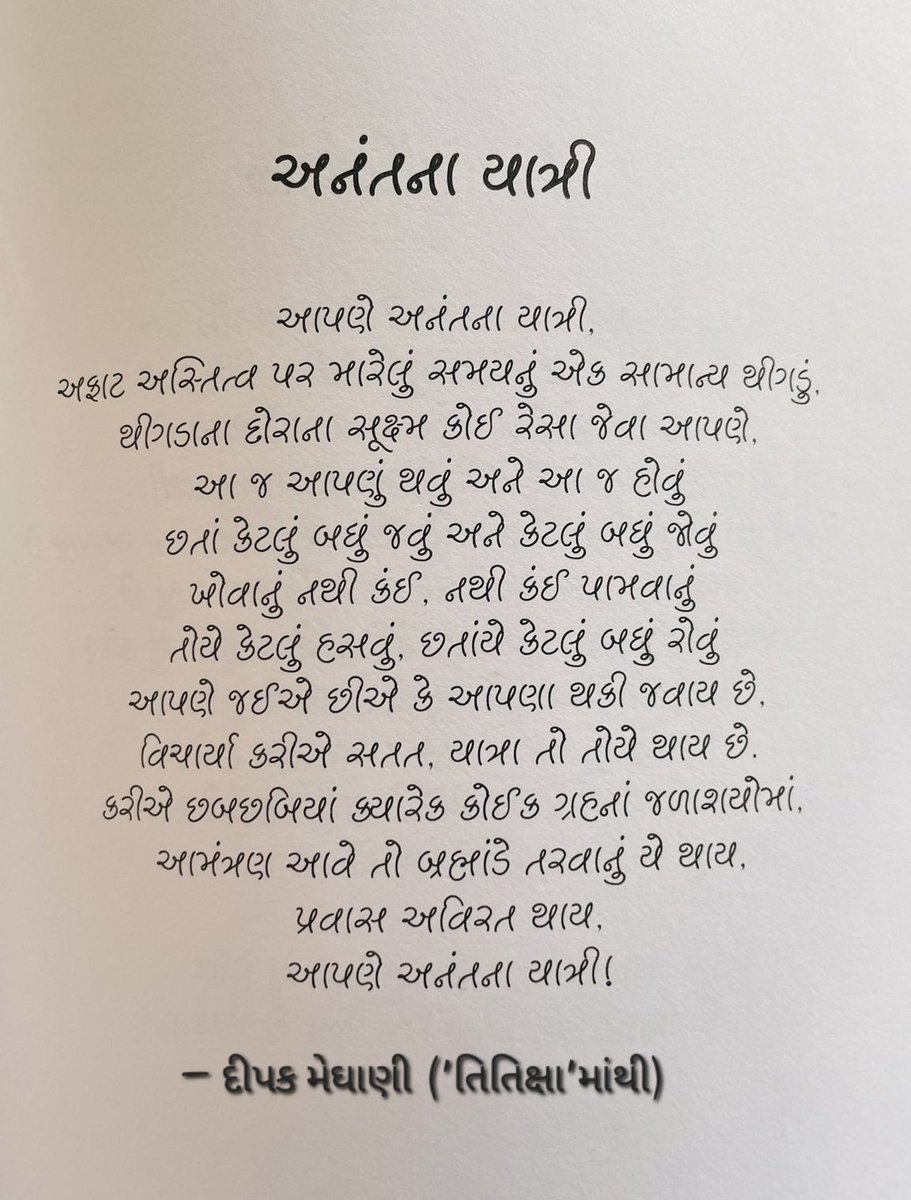 અનંતના યાત્રી
આપણે અનંતના યાત્રી,
અફાટ અસ્તિત્વ પર મારેલું સમયનું એક સામાન્ય થીગડું,
થીગડાના દોરાના સૂક્ષ્મ કોઈ રેસા જેવા આપણે,
આ જ આપણું થવું અને આ જ હોવું
છતાં કેટલું બધું જવું અને કેટલું બધું જોવું
ખોવાનું નથી કંઈ, નથી કંઈ પામવાનું
તોયે કેટલું હસવું, છતાંયે કેટલું બધું રોવું
આપણે જઈએ છીએ કે આપણા થકી જવાય છે,
વિચાર્યા કરીએ સતત, યાત્રા તો તોયે થાય છે.
કરીએ છબછબિયાં ક્યારેક કોઈક ગ્રહનાં જળાશયોમાં,
આમંત્રણ આવે તો બ્રહ્માંડે તરવાનું યે થાય,
પ્રવાસ અવિરત થાય,
આપણે અનંતના યાત્રી!
– દીપક મેઘાણી ('તિતિક્ષા'માંથી)